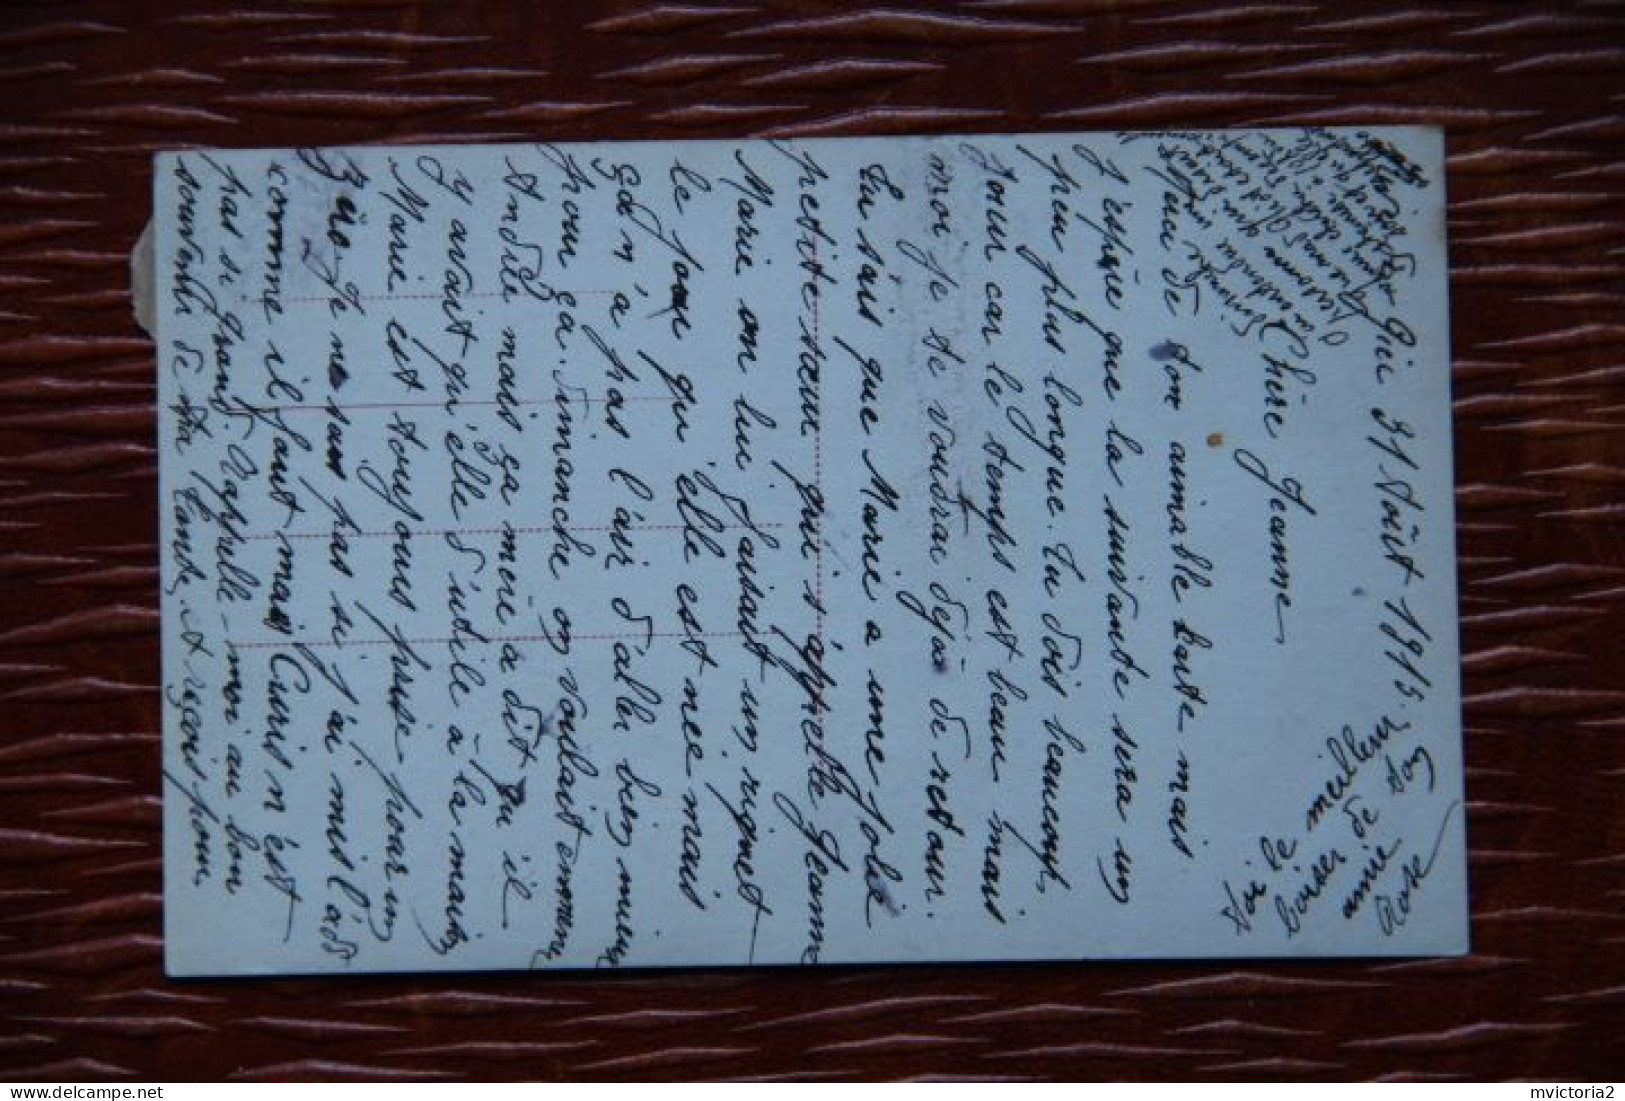 Gii 31 Août 1915.
Chère Jeanne,
Merci de ton aimable carte mais
j'espère que la suivante sera un
peu plus longue. Tu dois beaucoup,
jouir car le temps est beau mais
moi je te voudrai déjà de retour.
Tu sais que Marie a une jolie
petite sœur qui s'appelle Jeanne
Marie on lui faisait un signet
le jour qu'elle est née mais
ça n'a pas l'air d'aller bien mieux
pour ça. Dimanche on voulait emmener
Andrée mais sa mère a dit qu'il
y avait qu'elle d'utile à la maison
Marie est toujours prise pour un
zéro. Je ne sais pas si j'ai mis l'ads
comme il faut mais Curis n'est
pas si grand. Rappelle-moi au bon
souvenir de ta tante, et reçois pour
toi le meilleur
baiser de ton
amie
Rose
mvictoria2